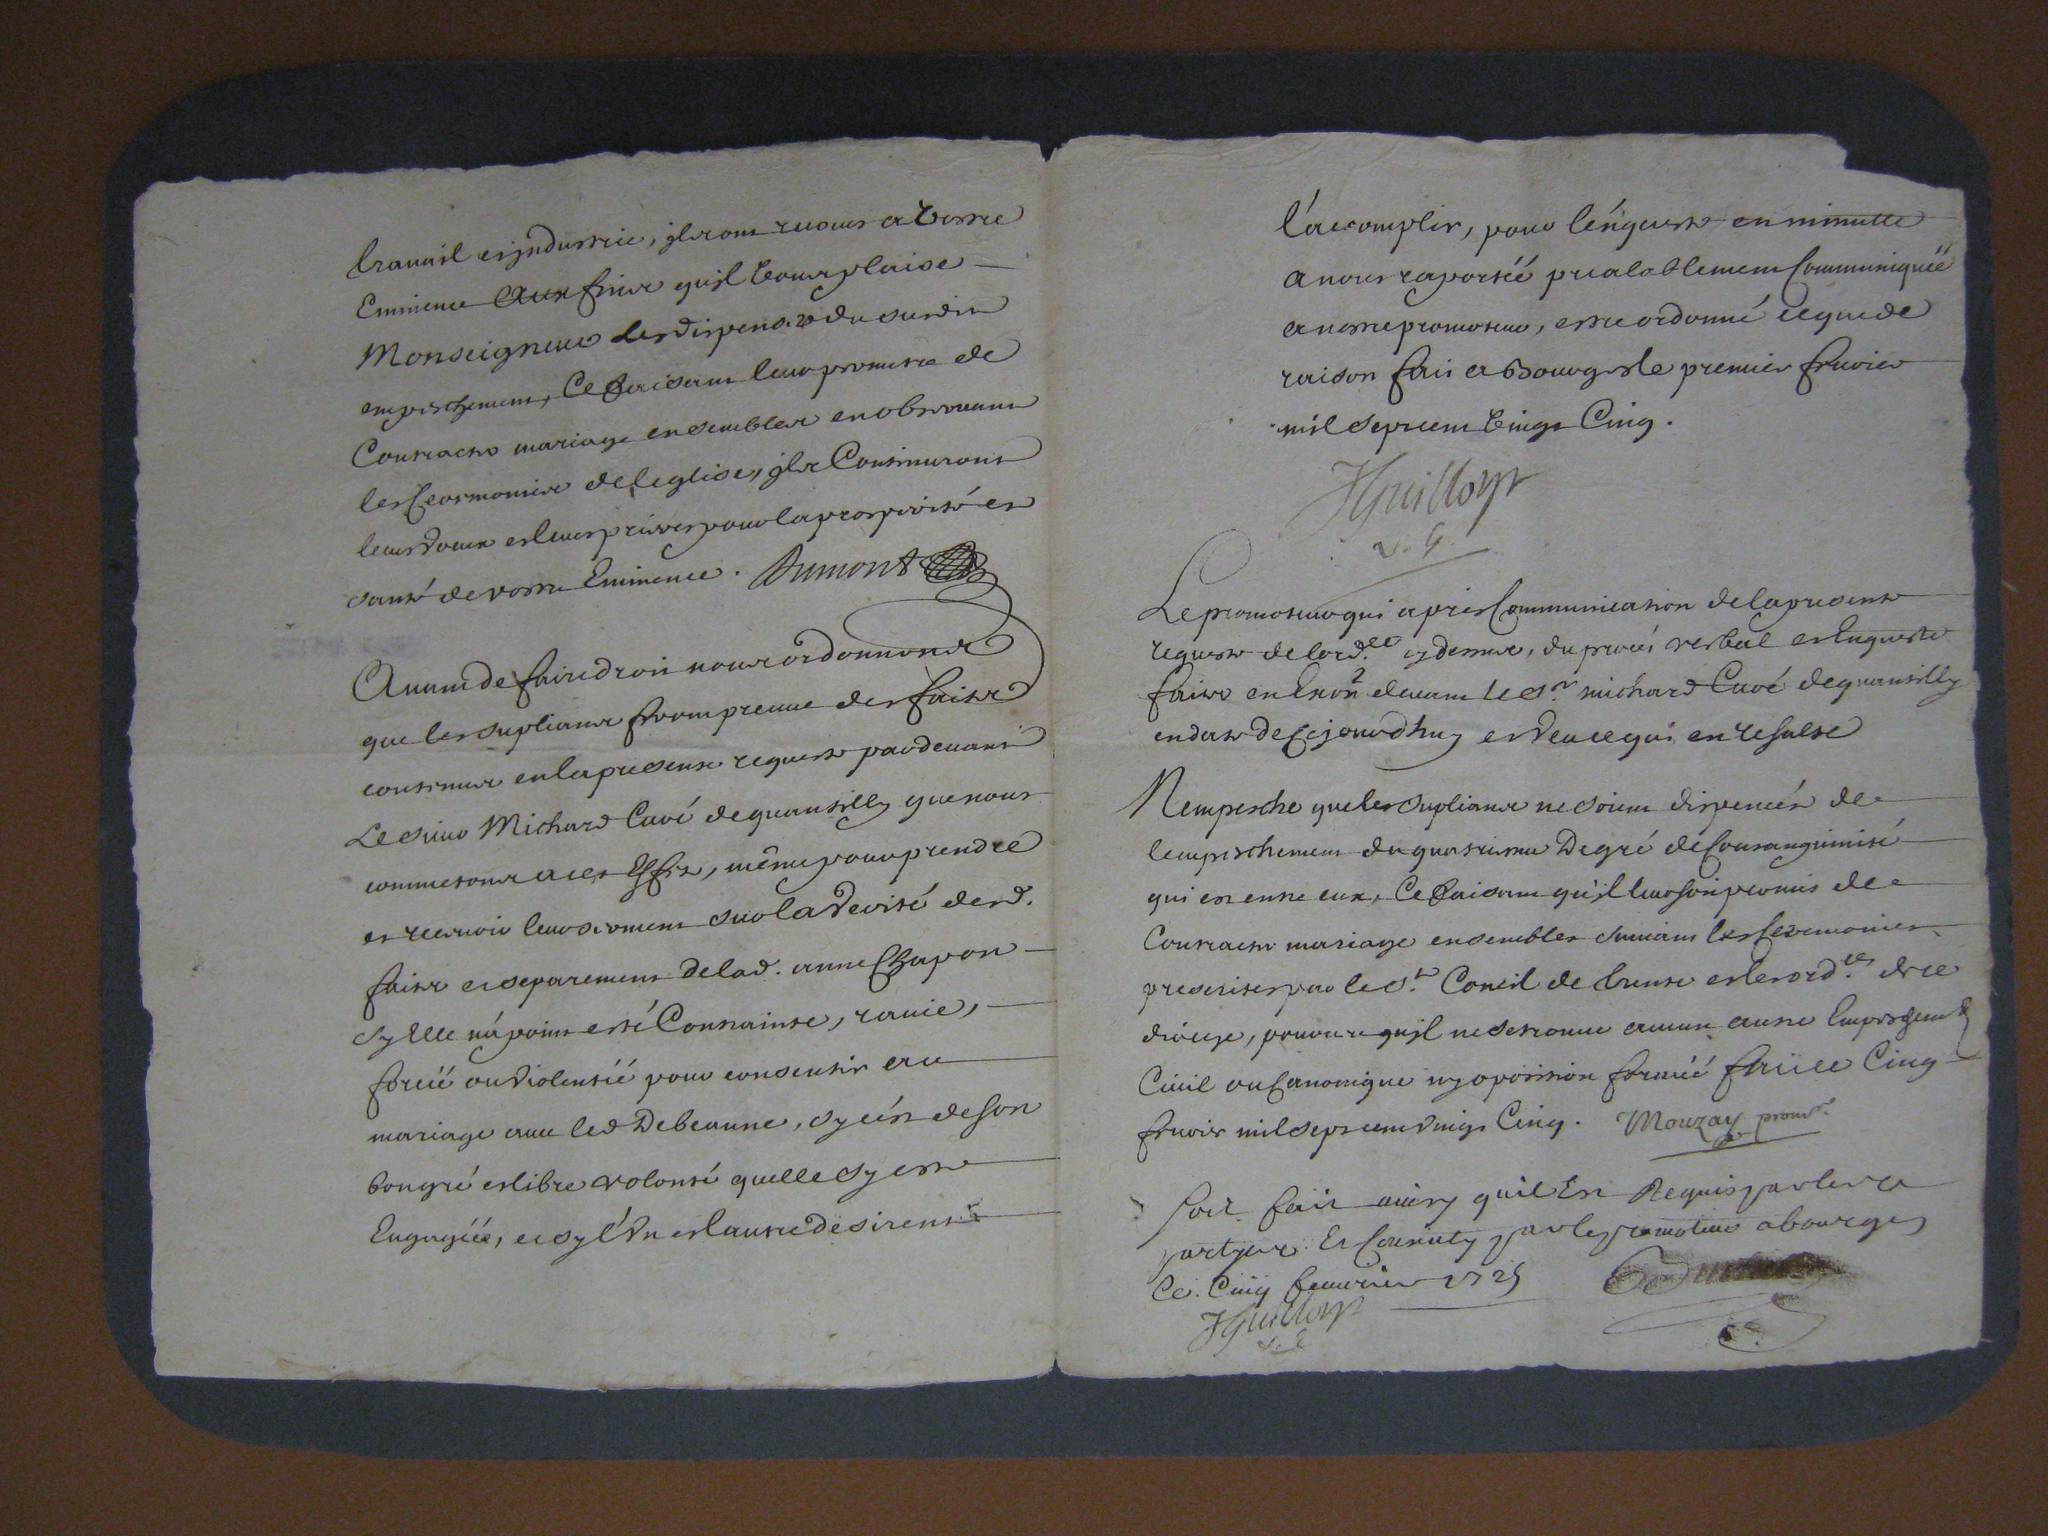 travail et jndustrie, jls ont recours a Vostre
Eminence aux fins qu'jl Vous plaise
Monseigneur les dispenser du susdit
empeschement, Ce faisant leur promettre de
Contracter mariage ensembles en observant
les Ceremonies de l'eglise, jls Continuront
leurs Voeux et leurs prieres pour la prosperité et
santé de vostre Eminence. Dumont
Avant de faire droit nous ordonnons
que les supliants feront preuve des faits
contenus en la presente requeste pardevant
Le sieur Michard Curé de quantilly que nous
commetons a cet Effet, même pour prendre
et recevoir leur serment sur la Verité desd.
faits et separement de lad. anne Chapon
sy Elle n'a point esté Contrainte, ravie,
forcéé ou violentéé pour consentir au
mariage avec led Debeaune, sy c'ést de son
bon gré et libre volonté quelle sy est
Engagéé, et sy l'Un et l'autre desirent
l'acomplir, pour l'énqueste en minutte
a nous raportéé prealablement Communiquéé
a nostre promoteur, estre ordonné ce que de
raison fait a Bourges le premier fevrier
mil sept cent Vingt Cinq.
JGuilloyt
v. g.
Le promoteur qui apres Communication de la presente
requeste de lord.ce cy dessus, du procés verbal et Enqueste
faits en Exon devant le sr. michard Curé de quantilly
en date de Cejourdhuy et Veu ce qui en resulte
N'empesche que les supliants ne soient dispencés de
l'empeschement du quatrieme Degré de Consanguinité
qui est entre eux, Ce faisant qu'jl leur soit promis de
Contracter mariage ensembles suivant les Ceremonies
prescrites par le st. Concil de trente et les ord.ces de ce
diocese, pourveu qu'jl ne se trouve aucun autre Empeschemt
Civil ou Canonique ny oposition forméé fait ce Cinq
fevrier mil sept cent Vingt Cinq. Mouzay promr.
soit fait ainsy quil Est Requis par les
partyes Et Consenty par le promoteur a bourges
Ce. Cinq feuvrier 1725
JGuilloyt
v. g